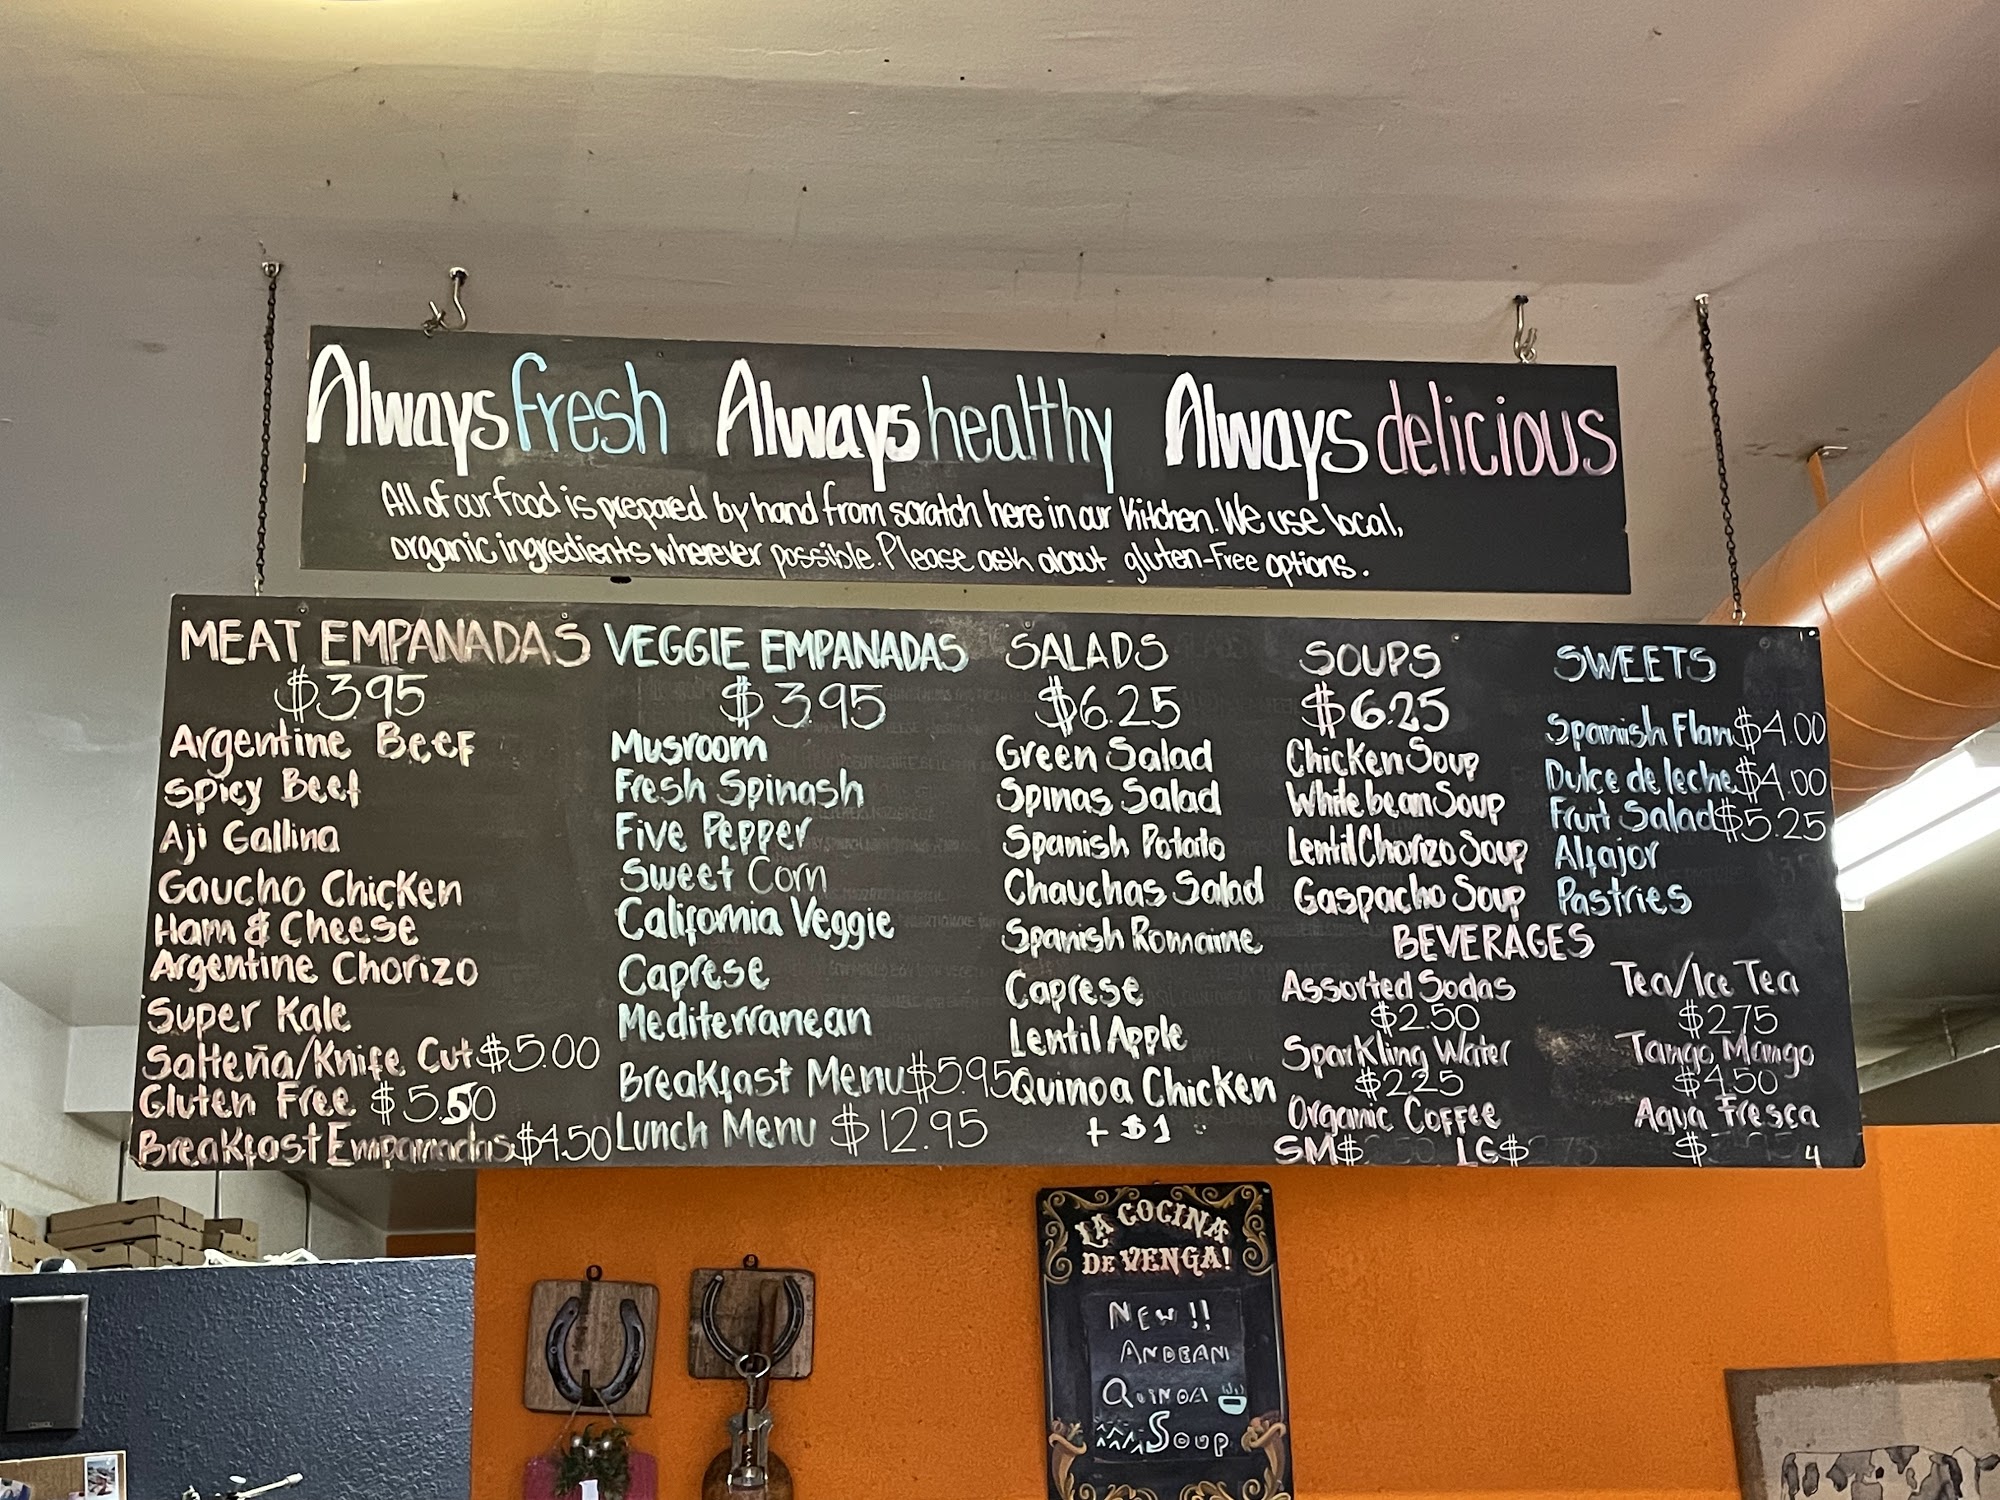 Always fresh Always healthy Always delicious
All of our food is prepared by hand from scratch here in our Kitchen. We use local,
organic ingredients wherever possible. Please ask about gluten-free options.
MEAT EMPANADAS
$3.95
Argentine Beef
Spicy Beef
Aji Gallina
Gaucho Chicken
Ham & Cheese
Argentine Chorizo
Super Kale
Salteña/Knife Cut $5.00
Gluten Free $5.50
Breakfast Empanadas $4.50
VEGGIE EMPANADAS
$3.95
Musroom
Fresh Spinash
Five Pepper
Sweet Corn
California Veggie
Caprese
Mediterranean
Breakfast Menu $5.95
Lunch Menu $12.95
SALADS
$6.25
Green Salad
Spinas Salad
Spanish Potato
Chauchas Salad
Spanish Romaine
Caprese
Lentil Apple
Quinoa Chicken
+ $1
SOUPS
$6.25
Chicken Soup
White bean Soup
Lentil Chorizo Soup
Gaspacho Soup
SWEETS
Spanish Flan $4.00
Dulce de leche $4.00
Fruit Salad $5.25
Alfajor
Pastries
BEVERAGES
Assorted Sodas
$2.50
Sparkling Water
$2.25
Organic Coffee
SM $ LG $
Tea/Ice Tea
$2.75
Tango Mango
$4.50
Agua Fresca
$ 4
LA COCINA
DE VENGA!
NEW!!
ANDEAN
QUINOA
SOUP